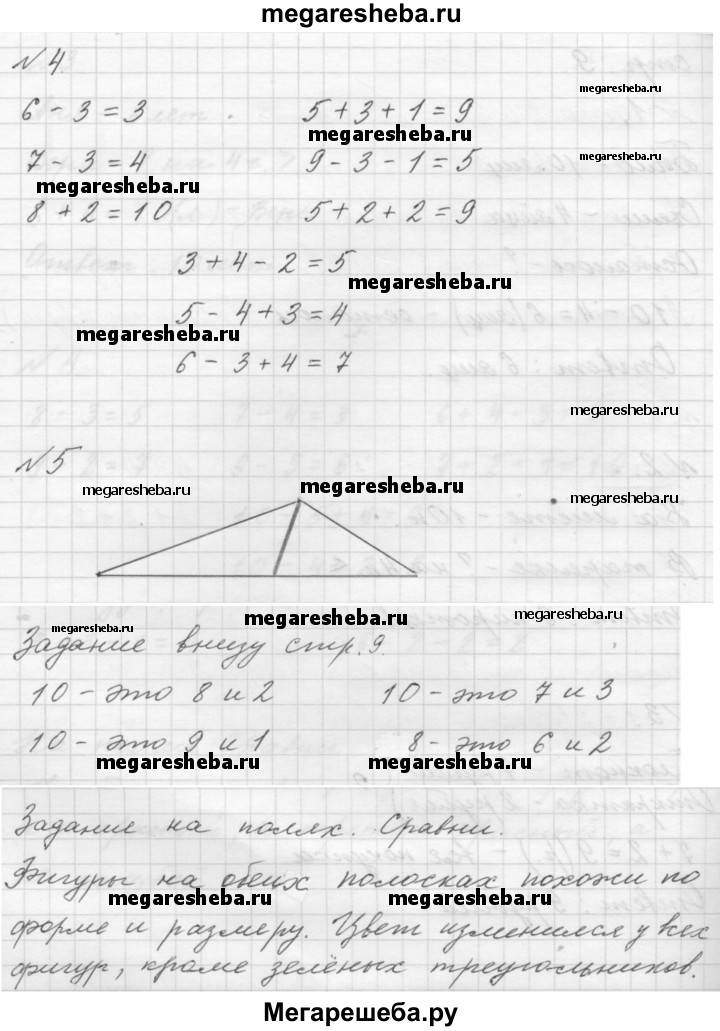 megaresheba.ru
№4
megaresheba.ru
6 - 3 = 3 5 + 3 + 1 = 9
megaresheba.ru
7 - 3 = 4 9 - 3 - 1 = 5 megaresheba.ru
megaresheba.ru
8 + 2 = 10 5 + 2 + 2 = 9
3 + 4 - 2 = 5
megaresheba.ru
5 - 4 + 3 = 4
megaresheba.ru
6 - 3 + 4 = 7
megaresheba.ru
№5
megaresheba.ru megaresheba.ru megaresheba.ru
megaresheba.ru megaresheba.ru megaresheba.ru
Задание внизу стр. 9.
10 - это 8 и 2 10 - это 7 и 3
10 - это 9 и 1 8 - это 6 и 2
megaresheba.ru megaresheba.ru
Задание на полях. Сравни.
Фигуры на обеих полосках похожи по
megaresheba.ru megaresheba.ru
форме и размеру. Цвет изменился у всех
фигур, кроме зелёных треугольников.
Мегарешеба.ру